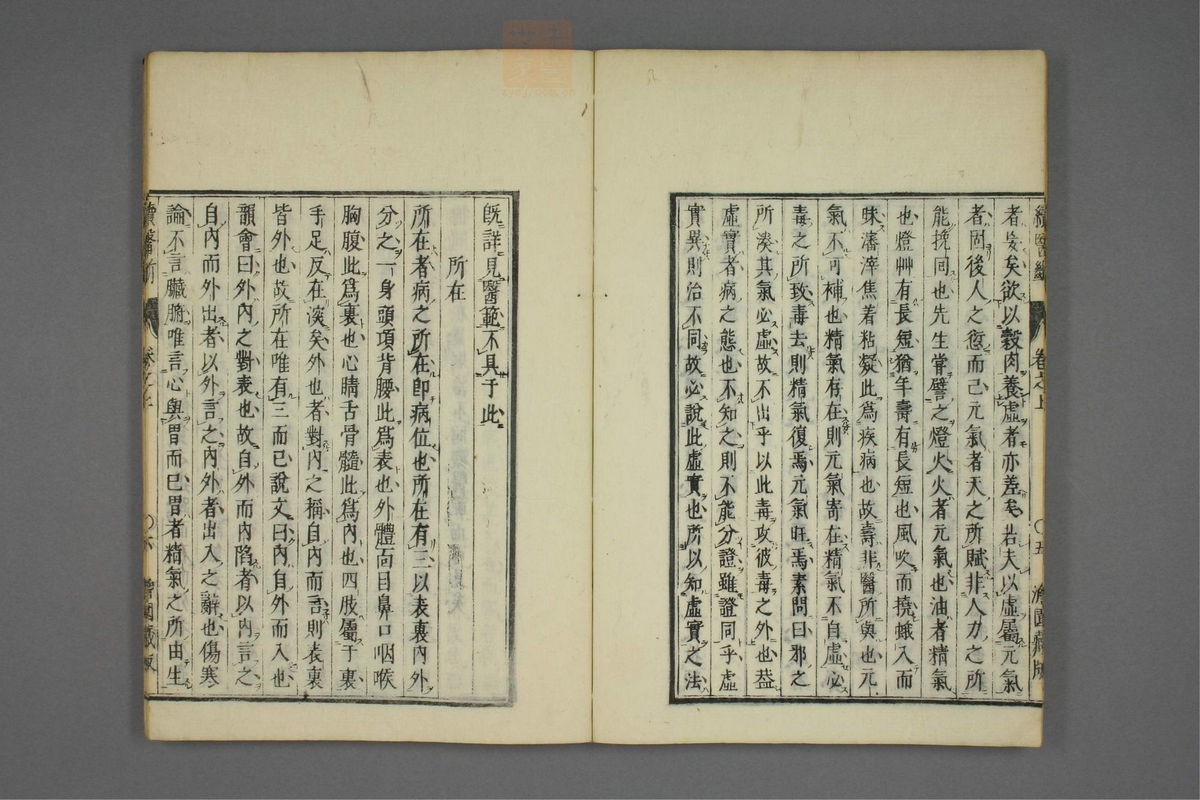 者妄矣欲以穀肉養虛者亦差矣若夫以虛屬元氣
者固後人之愆而已元氣者天之所賦非人力之所
能挽回也先生嘗譬之燈火火者元氣也油者精氣
也燈艸有長短猶年壽有長短也風吹而撓蛾入而
味瀋滓焦着粘凝此爲疾病也故壽非醫所與也元
氣不可補也精氣存在則元氣寄在精氣不自虛必
毒之所致毒去則精氣復焉元氣旺焉素問曰邪之
所湊其氣必虛故不出乎以此毒攻彼毒之外也蓋
虛實者病之態也不知之則不能分證雖證同乎虛
實異則治不同故必說此虛實也所以知虛實之法
續醫斷
卷之上
〇五
濟園藏版
既詳見醫範不具于此
所在
所在者病之所在即病位也所在有三以表裏內外
分之一身頭項背腰此爲表也外體面目鼻口咽喉
胸腹此爲裏也心睛舌骨髓此爲內也四肢屬于裏
手足反在深矣外也者對內之稱自內而言則表裏
皆外也故所在唯有三而已說文曰內自外而入也
韻會曰外內之對表也故自外而內陷者以內言之
自內而外出者以外言之內外者出入之辭也傷寒
論不言臟腑唯言心與胃而已胃者精氣之所由生
續醫斷
卷之上
〇六
濟園藏版